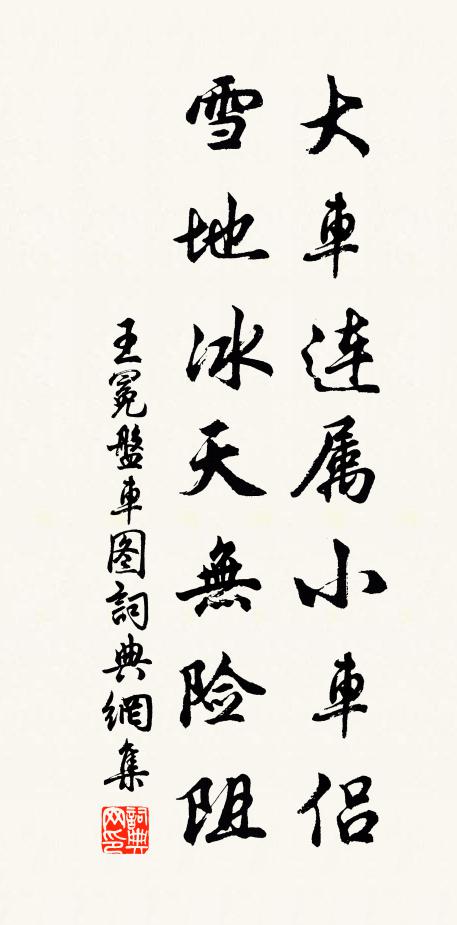 大車連属小車侣
雪地冰天無險阻
王冕盤車图詞典網集
詞典網印